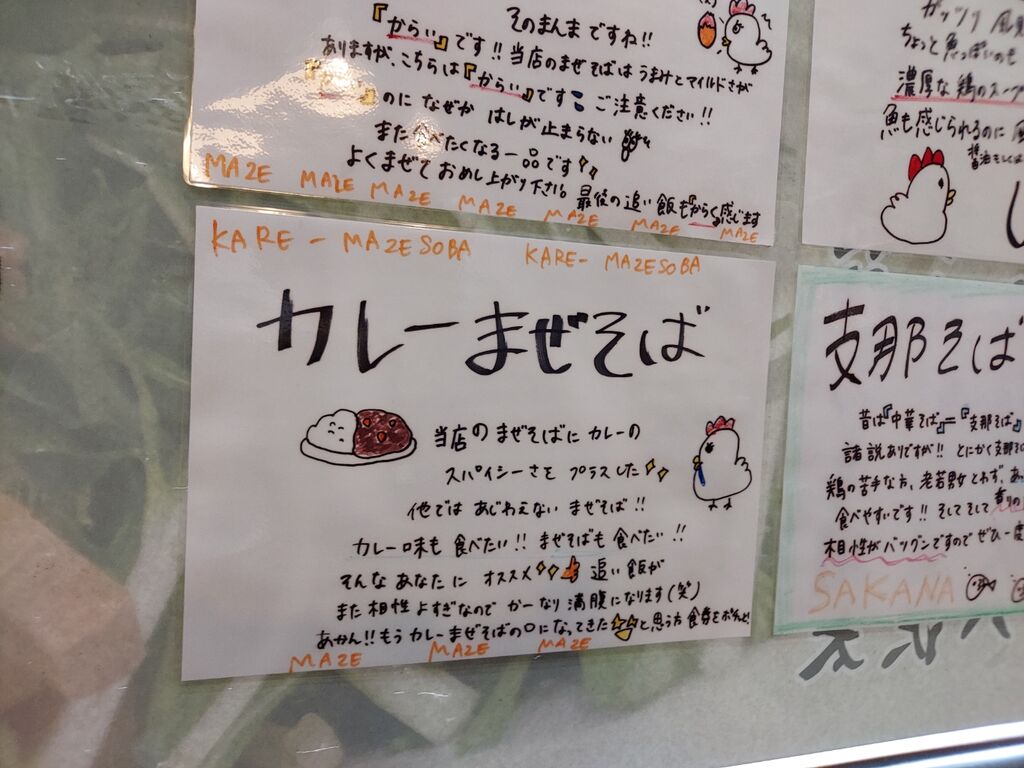 そのまんまですね!!
『からい』です!! 当店のまぜそばはうまみとマイルドさが
ありますが、こちらは『からい』です ご注意ください!!
のに なぜか はしが止まらない
また食べたくなる一品です
よくまぜて おめし上がり下さい。最後の追い飯も『からく』感じます
MAZE MAZE MAZE MAZE MAZE MAZE MAZE
KARE - MAZESOBA KARE- MAZESOBA
カレーまぜそば
当店の まぜそばに カレーの
スパイシーさを プラスした
他では あじわえない まぜそば!!
カレー味も 食べたい!! まぜそばも 食べたい!!
そんな あなたに オススメ 追い飯が
また 相性 よすぎなので かーなり 満腹になります(笑)
あかん!! もう カレーまぜそばの口になってきた と思う方 食券をポチッと!
MAZE MAZE MAZE
ガッツリ
ちょっと魚っぽいのも
濃厚な鶏のスープ
魚も感じられるのに
醤油もしくは
支那そば
昔は『中華そば』=『支那そば』
諸説ありですが!! とにかく支那そ
鶏の苦手な方、老若男女とわず、あ
食べやすいです!! そしてそして 香りの
相性がバツグンですのでぜひ一度
SAKANA